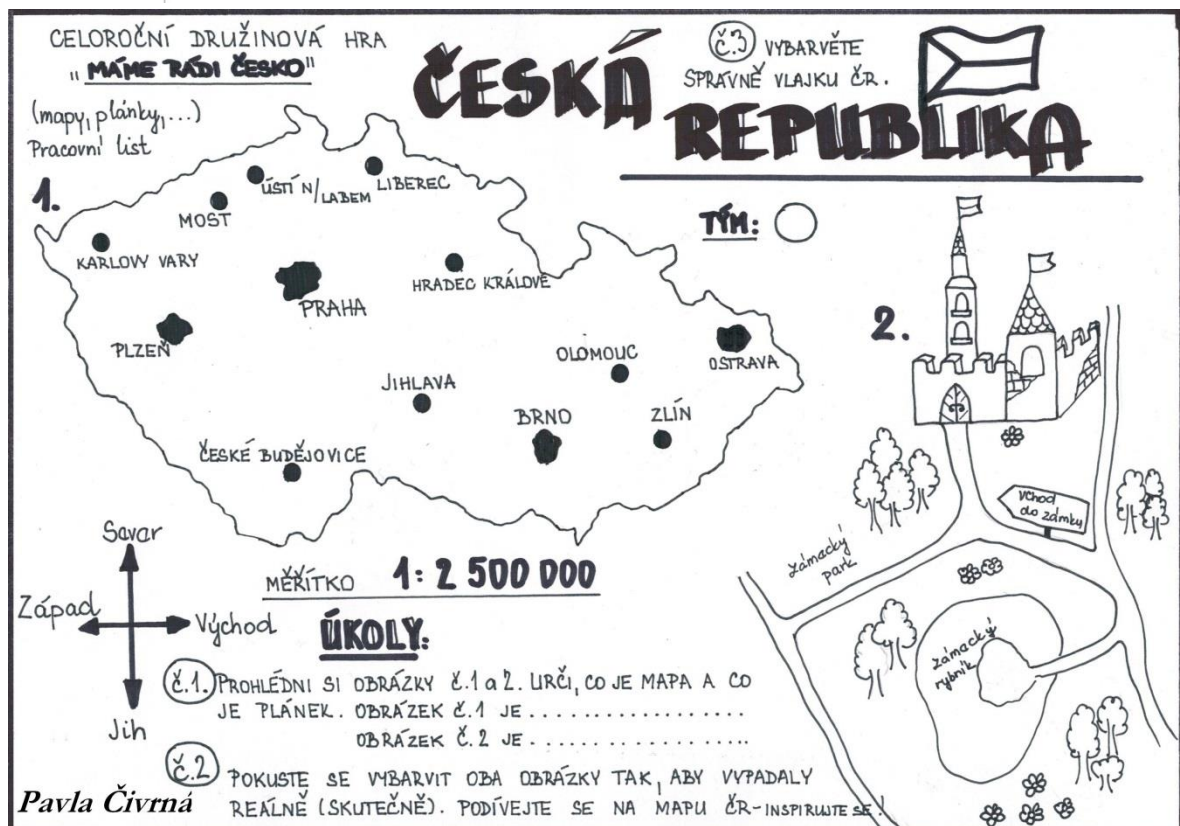 CELOROČNÍ DRUŽINOVÁ HRA
"MÁME RÁDI ČESKO"
(mapy, plánky,...)
Pracovní list
ČESKÁ
REPUBLIKA
č.3 VYBARVĚTE
SPRÁVNĚ VLAJKU ČR.
TÝM:
1.
ÚSTÍ N/LABEM
LIBEREC
MOST
KARLOVY VARY
HRADEC KRÁLOVÉ
PRAHA
PLZEŇ
OLOMOUC
OSTRAVA
JIHLAVA
BRNO
ZLÍN
ČESKÉ BUDĚJOVICE
2.
vchod
do zámky
zámacký
park
zámacký
rybník
Savar
Západ
Východ
Jih
MĚŘÍTKO 1: 2 500 000
ÚKOLY:
č.1. PROHLÉDNI SI OBRÁZKY Č.1 a 2. URČI, CO JE MAPA A CO
JE PLÁNEK. OBRÁZEK Č.1 JE ...................
OBRÁZEK Č.2 JE ...................
č.2 POKUSTE SE VYBARVIT OBA OBRÁZKY TAK, ABY VYPADALY
REÁLNĚ (SKUTEČNĚ). PODÍVEJTE SE NA MAPU ČR-INSPIRUJTE SE!
Pavla Čivrná